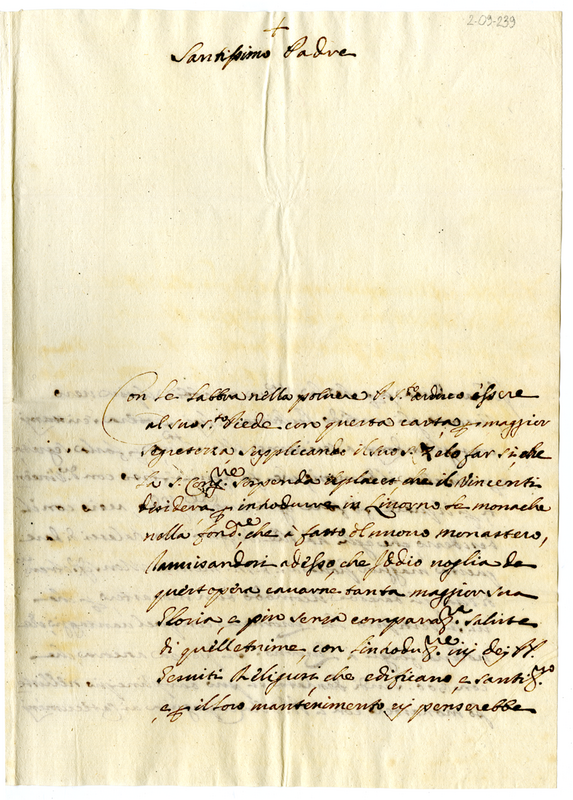 2-09-239
+
Santissimo Padre
Con le labbra nella polvere P. S.to ardisco essere
al suo s.to Piede con questa carta, p maggior
segretezza supplicando il suo s. Zelo far sì, che
la S. Cong.ne sospenda il placet che il Vincenti
desidera p introdurre in Livorno le monache
nella fond.ne che à fatto del nuovo monastero,
ravvisandosi adesso, che Iddio voglia da
quest opera cavarne tanta maggior sua
Gloria, e più senza comparaz.ne salute
di quelle anime, con l'introduz.ne ivi dei PP.
Gesuiti Religiosi che edificano, e santi
e p il loro mantenimento ivi penserebbe